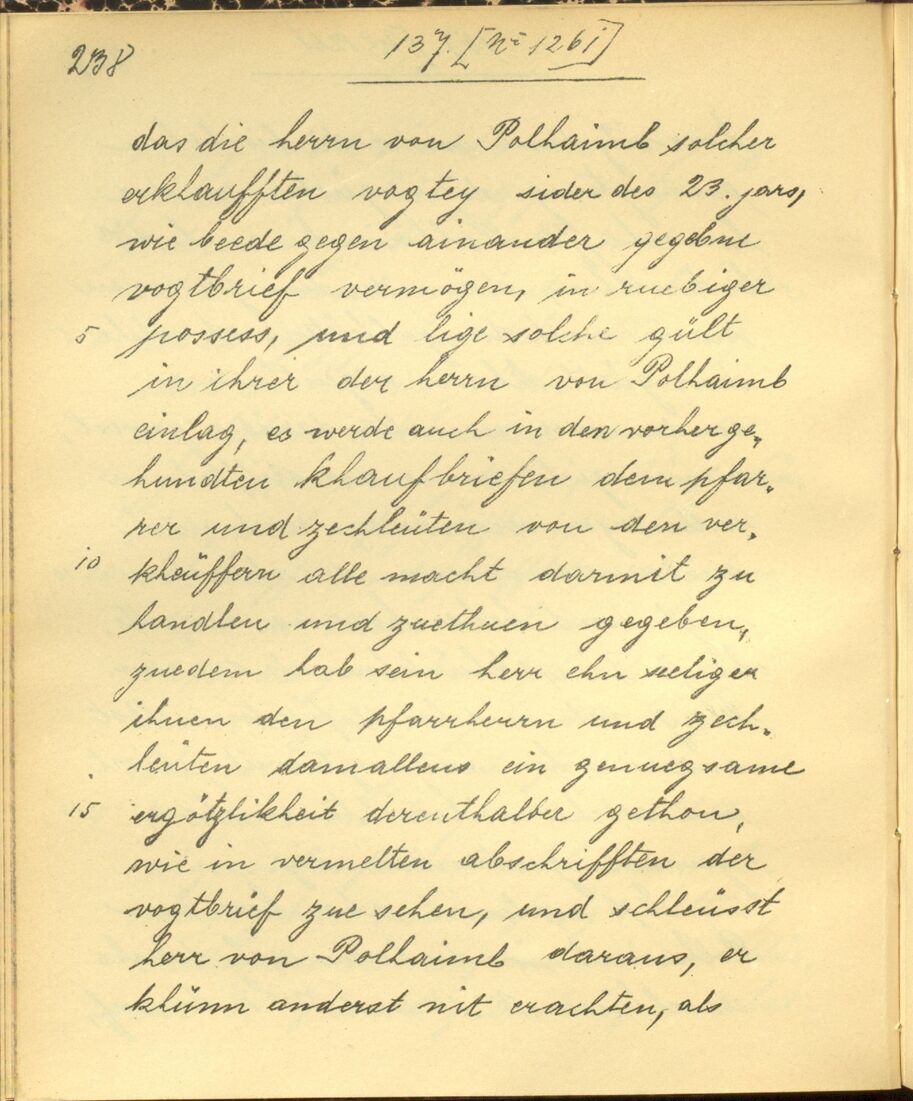 238
137. [Nr 1261]
das die herrn von Polhaimb solcher
erkhaufften vogtey sider des 23. jars,
wie beede gegen ainander gegebne
vogtbrief vermögen, in ruebiger
5 possess, und lige solche gült
in ihrer der herrn von Polhaimb
einlag, es werde auch in den vorherge„
hundten khaufbriefen dem pfar„
rer und zechleüten von den ver„
10 kheüffern alle macht darmit zu
handlen und zuethuen gegeben,
zuedem hab sein herr ehn seeliger
ihnen den pfarrherrn und zech„
leüten damallens ein genuegsame
15 ergötzlikheit derenthalber gethon,
wie in vermelten abschrifften der
vogtbrief zue sehen, und schleüsst
herr von Polhaimb daraus, er
khünn anderst nit erachten, als